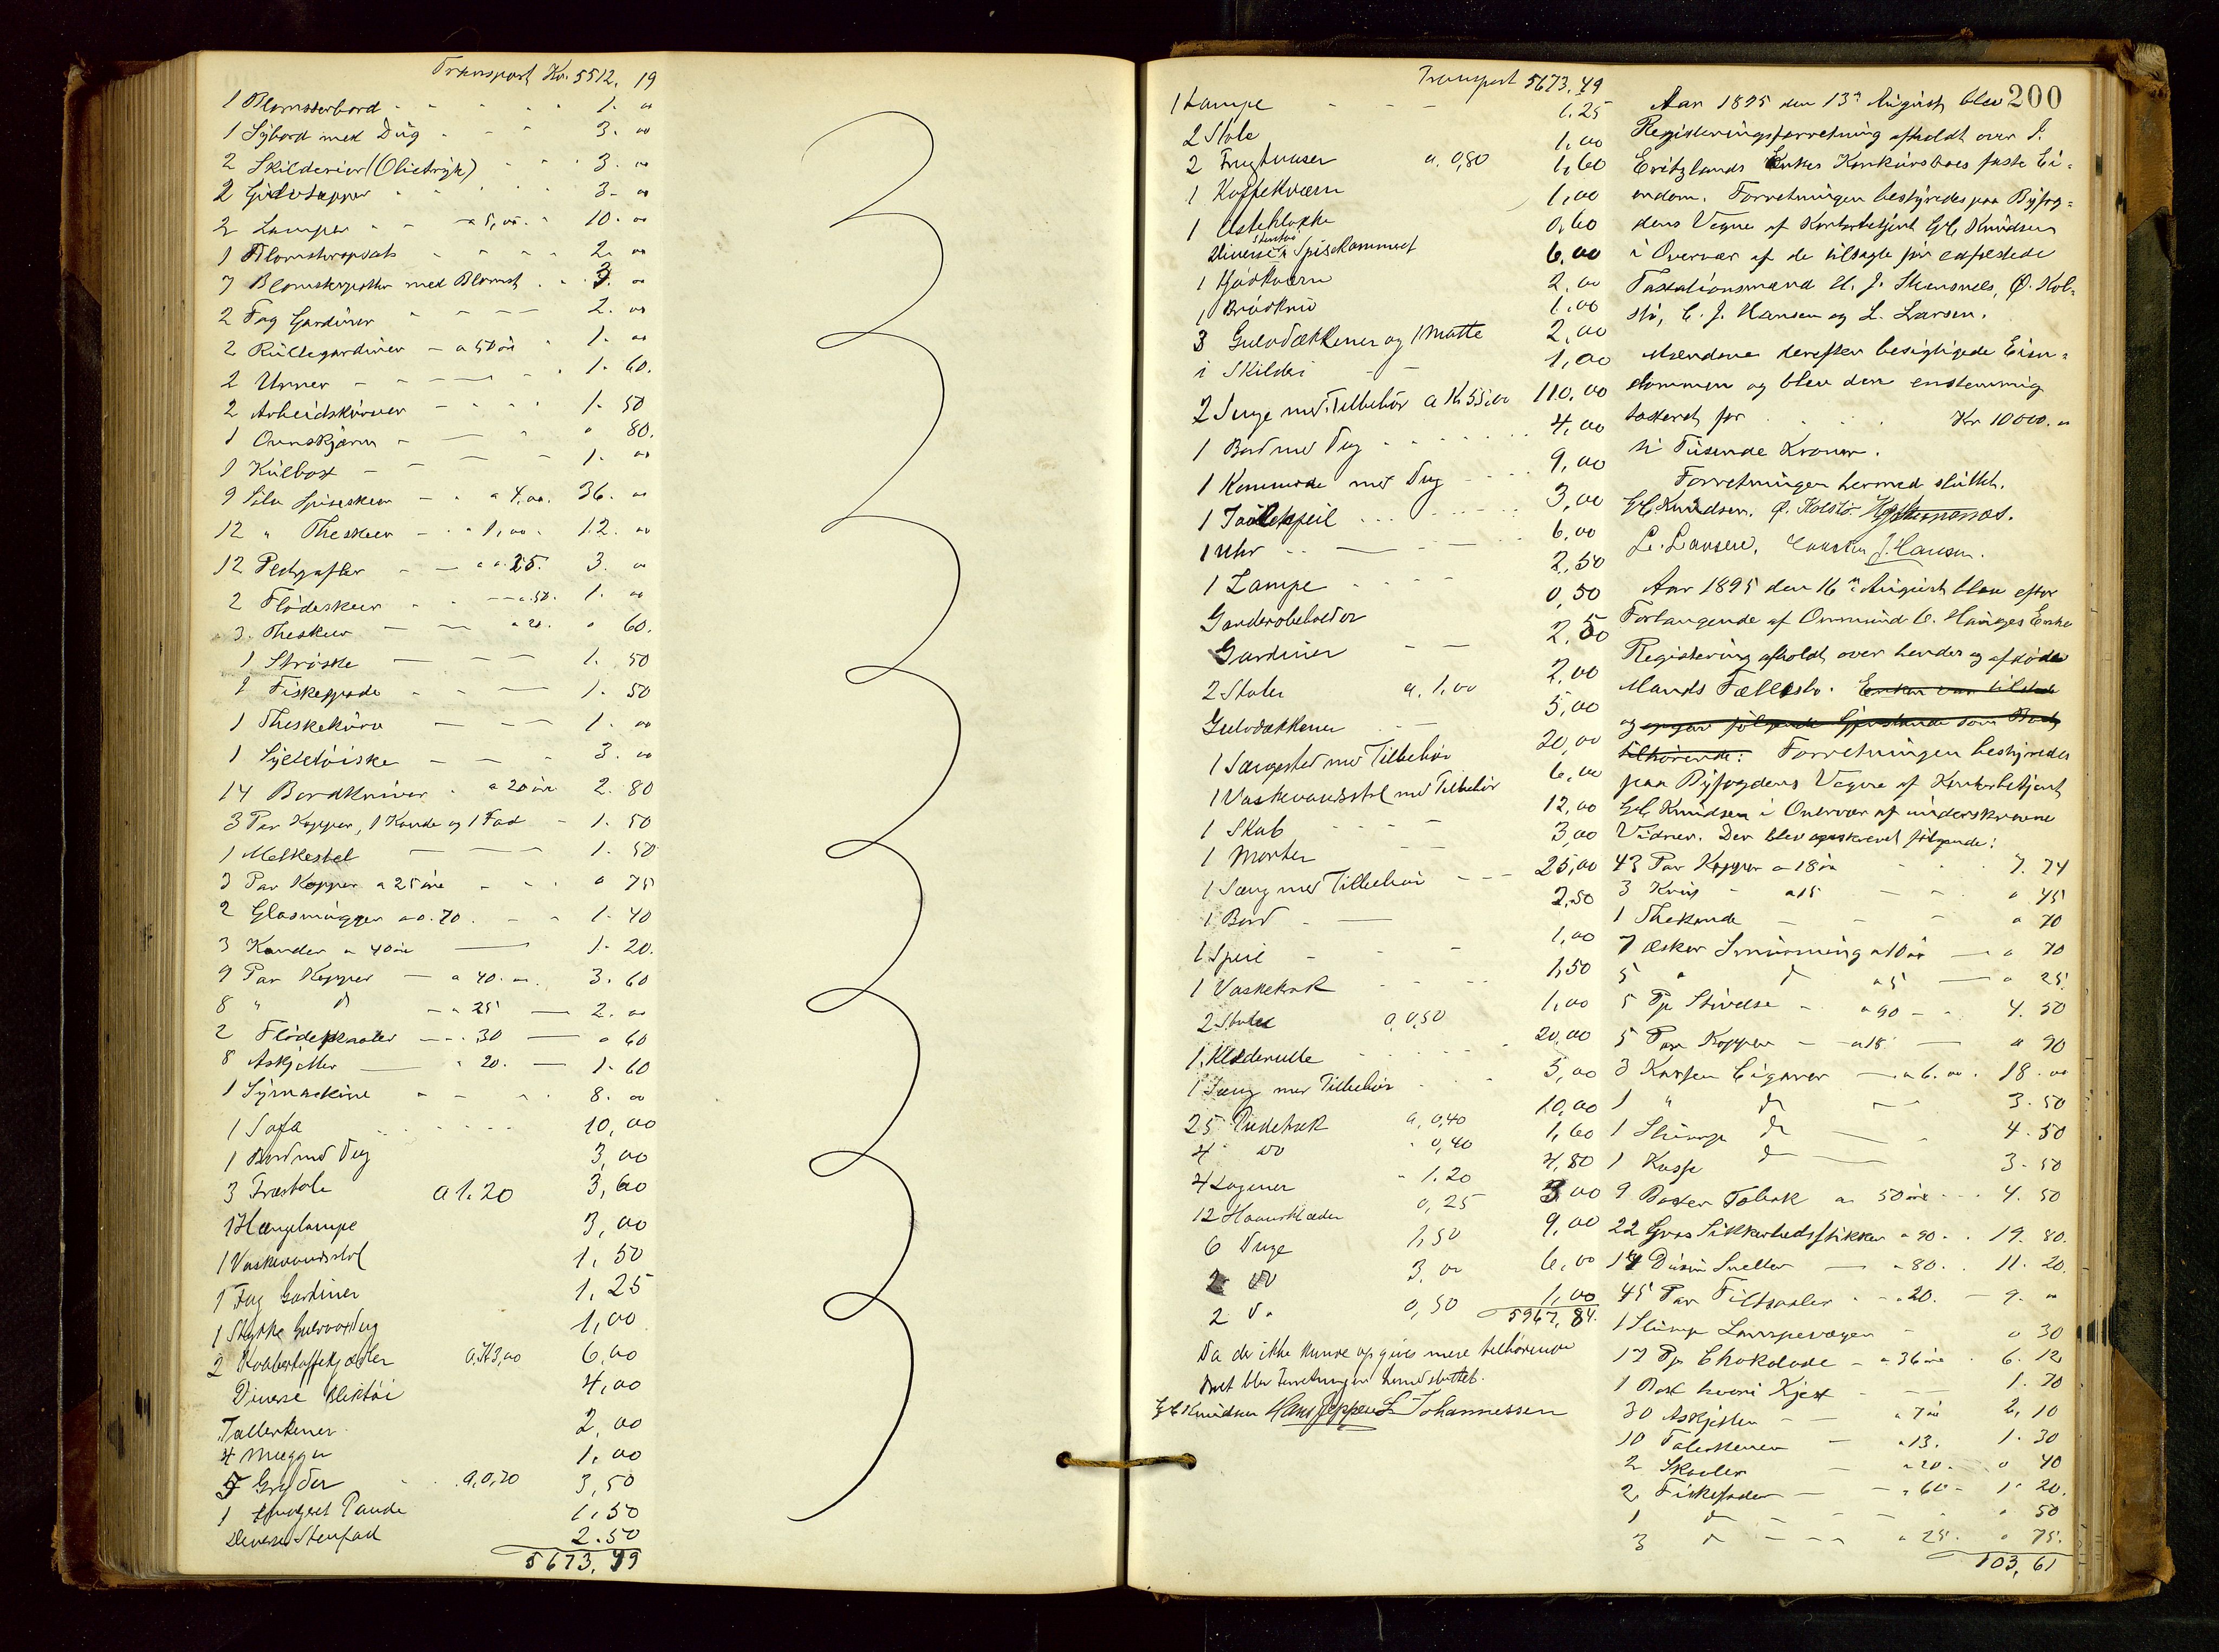 Transport Kr. 5512. 19
1 Blomsterbord - - - - - 1. "
1 Sybord med Dug - - - 3. "
2 Skilderier (Olietryk) - - 3. "
2 Gulvtepper - - - 3. "
2 Lamper - - a 5,00. 10. "
1 Blomsteropsats - - - 2. "
7 Blomsterpotter med Blomst - - 3. "
2 Fag Gardiner - - - - 2. "
2 Rullegardiner - a 50 øre 1. "
2 Urner - - - - 1. 60.
2 Arbeidskurver - - - 1. 50
1 Ovnskjærm - - - " 80.
1 Kulbox - - - - 1. "
9 Sølv Spiseskeer - - a 4,00. 36. "
12 " Theskeer - - a 1,00 - 12. "
12 Pletgafler - - a 25. 3. "
2 Flødeskeer - - - a 50. 1. "
3 Theskeer - - a 20. " 60.
1 Strøske - - - 1. 50
1 Fiskespade - - - 1. 50
1 Theskekurv - - - 1. "
1 Syltetøiske - - - 3. "
14 Bordkniver - a 20 øre 2. 80
3 Par Kopper, 1 Kande og 1 Fad - 1. 50
1 Melkestel - - - 1. 50
3 Par Kopper a 25 øre - - - " 75
2 Glasmugger a 0.70. - - 1. 40
3 Kander a 40 øre - 1. 20.
9 Par Kopper - a 40. ". 3. 60
8 " do - a 25 - 2. "
2 Flødeskaaler - - 30 - " 60
8 Askjetter - " 20. - 1. 60
1 Symaskine - - - 8. "
1 Sofa - - - - - 10,00
1 Bord med Dug 3,00
3 Træstole a 1.20 3,60
1 Hængelampe 3,00
1 Vaskevandsstol 1,50
1 Fag Gardiner 1,25
1 Stykke Gulvvoxdug 1,00
2 Kobberkaffekjædler a Kr 3,00 6,00
Diverse Bliktøi 4,00
Tallerkener 2,00
4 Mugger 1,00
5 Gryder a 0,70 3,50
1 Pande 1,50
Diverse Stenfad 2.50
5673,49
Transport 5673,49
1 Lampe - - - 1.25
2 Stole 1,00
2 Frugtvaser a 0,80 1,60
1 Kaffekværn 1,00
1 Osteklokke 0,60
Diverse Stentøi i Spisekammeret 6,00
1 Kjødkværn 2,00
1 Brødkniv 1,00
3 Gulvdækkener og 1 Matte 2,00
1 Skilderi - - 1,00
2 Senge med Tilbehør a Kr 55,00 110,00
1 Bord med Dug - - - - - 4,00
1 Kommode med Dug - - - 9,00
1 Toiletspeil ... - - - 3,00
1 Uhr - - - - 6,00
1 Lampe - - - - 2,50
Garderobeholder 0,50
Gardiner - - 2,50
2 Stoler a. 1,00 2,00
Gulvdækkener - - 5,00
1 Sængested med Tilbehør 20,00
1 Vaskevandsstol med Tilbehør 6,00
1 Skab - - - - 12,00
1 Morter - - 3,00
1 Sæng med Tilbehør - - - 25,00
1 Bord - - 2,50
1 Speil - - 1,00
1 Vaskekrak - - - - 1,50
2 Stoler a 0,50 1,00
1 Klæderulle - - - - - 20,00
1 Sæng med Tilbehør - - - 5,00
25 Pudetræk a 0,40 10,00
4 do " 0,40 1,60
4 Lagener " 1.20 4,80
12 Haandklæder 0,25 3,00
6 Duge 1,50 9,00
2 do 3,00 6,00
2 do 0,50 1,00
5967,84.
Da der ikke kunne opgives mere tilhørende
Boet blev Forretningen hermed sluttet.
G. C. Knudsen Hans Jeppesen L Johannessen
200
Aar 1895 den 13de August blev
Registreringsforretning afholdt over J.
Eritzlands Enkes Konkursboes faste Ei-
endom. Forretningen bestyredes paa Byfog-
dens Vegne af Kontorbetjent G. C. Knudsen
i Overvær af de tilsagte før edfæstede
Taxationsmænd H. J. Stensnes, Ø. Kol-
stø, C. J. Hansen og L. Larsen.
Mændene derefter besigtigede Eien-
dommen og blev den enstemmig
taxeret for . . . . Kr 10000. "
ti Tusende Kroner.
Forretningen hermed sluttet.
G. C. Knudsen. Ø. Kolstø. H J Stensnes.
L. Larsen. J. Hansen.
Aar 1895 den 16de August blev efter
Forlangende af Ommund C. Hauges Enke
Registrering afholdt over hendes og afdøde
Mands Fællesbo. Enken var tilstede
og opgav følgende Gjenstande som Boet
tilhørende: Forretningen bestyredes
paa Byfogdens Vegne af Kontorbetjent
G. C. Knudsen i Overvær af underskrevne
Vidner. Der blev opskrevet følgende:
43 Par Kopper a 18 øre - - 7. 74
3 Krus - a 15 - - " 45
1 Thekande - - - " 70
7 Æsker Smurning a 10 øre - " 70
5 " do a 5 - " 25
5 Pk Stivelse - a 90 - - 4. 50
5 Par Kopper - - a 18 - " 90
3 Kasser Cigarer - a 6. ". 18. "
1 " do - - 3. 50
1 Slump do - - 4. 50
1 Kasse do - 3. 50
9 Daaser Tobak a 50 øre - - 4. 50
22 Gros Sikkerhedsstikker a 90 - . 19. 80.
14 Dusin Sneller - a 80. . 11. 20.
45 Par Filtsaaler - - a 20. - 9. "
1 Slump Lampevæger - " 30
17 Pk Chokolade - a 36 øre . 6. 12
1 - - - 1. 70
30 Askjetter - - a 7 øre 2, 10
10 Talerkener - a 13. 1. 30
2 Skaaler - a 20. - " 40
2 Fiskefader - - a 60 - 1. 20.
1 do - - - - " 50
3 do - - - a 25. " 75.
103,61